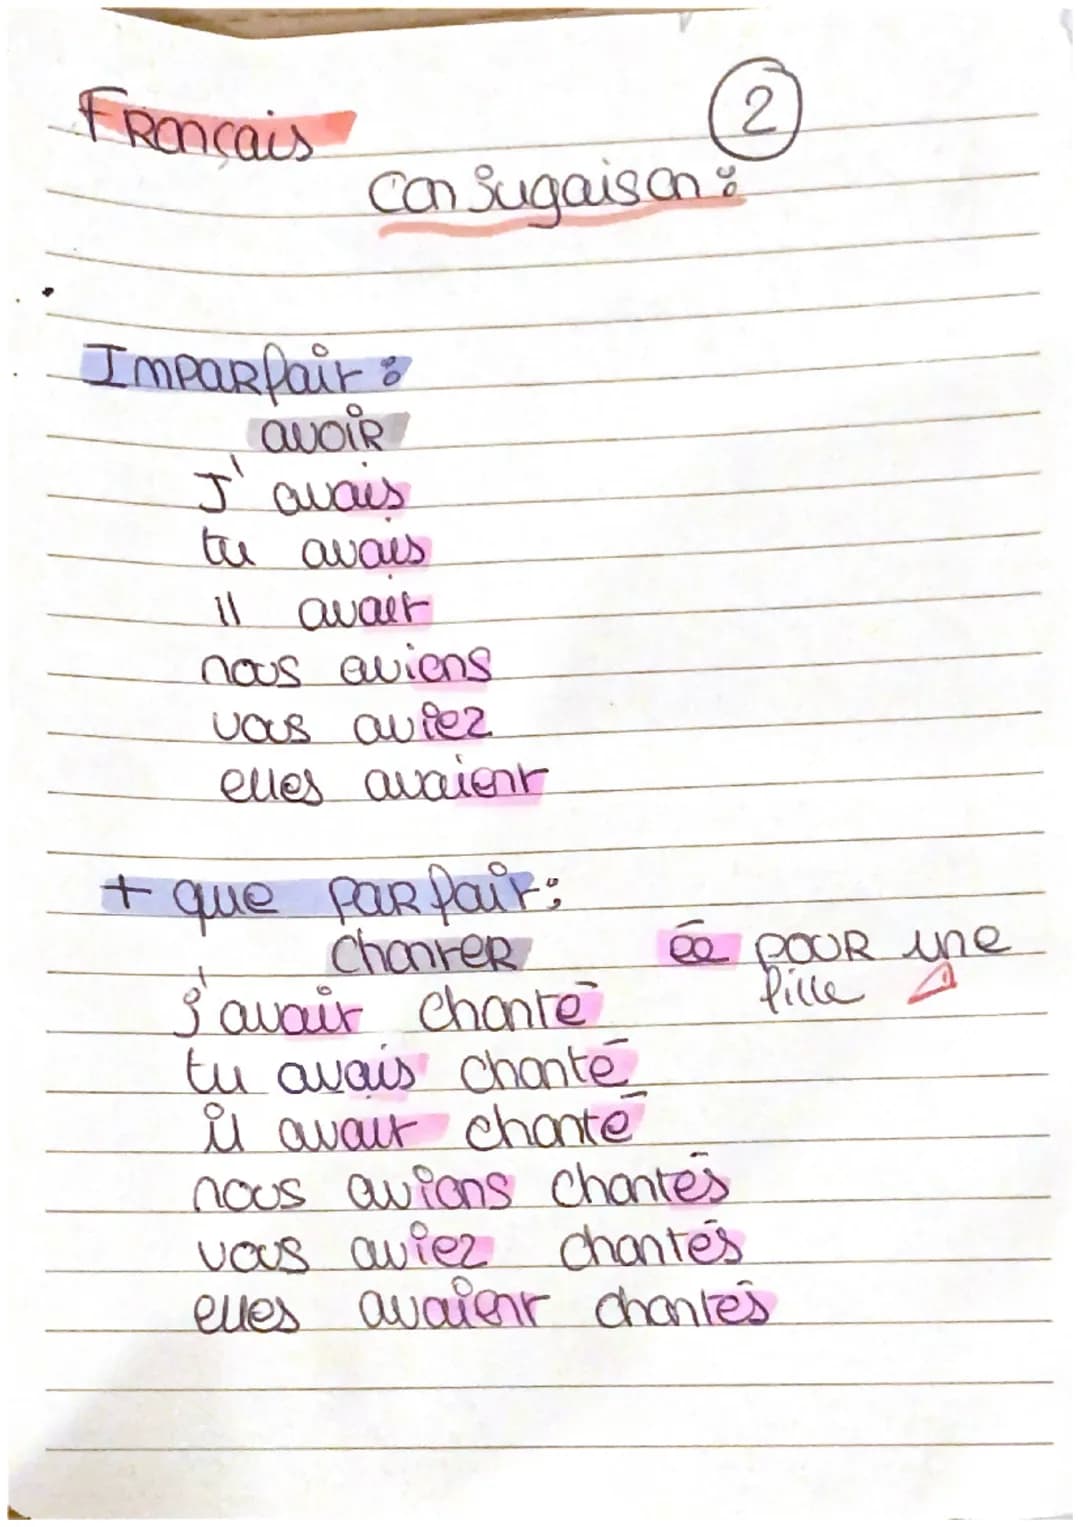 Français
2
Conjugaison :
Imparfait :
avoir
J'avais
tu avais
il avait
nous avions
vous aviez
elles avaient
+ que parfait :
chanter
ée pour une
fille
j'avait chanté
tu avais chanté
il avait chanté
nous avions chantés
vous aviez chantés
elles avaient chantés